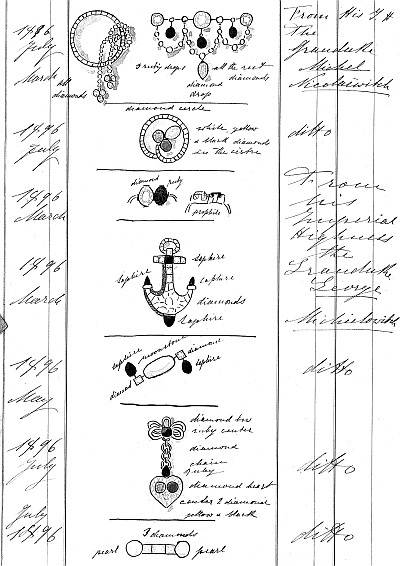 1896
July
March
all
diamonds
3 ruby drops
diamond
drop
all the rest
diamonds
From His I H
The
Granduke
Michel
Nicolaiwitch
diamond circle
1896
July
white yellow
& black diamonds
in the centre
ditto
diamond
ruby
1896
March
prophile
From
his
Imperial
Highness
the
Granduke
George
Michielowitch
1896
March
saphire
saphire
saphire
diamonds
Saphire
1896
May
saphire
moonstone
diamond
saphire
diamond
ditto
1896
July
diamond bow
ruby center
diamond
chain
ruby
diamond heart
center 2 diamond
yellow & black
ditto
July
1896
3 diamonds
pearl
pearl
ditto